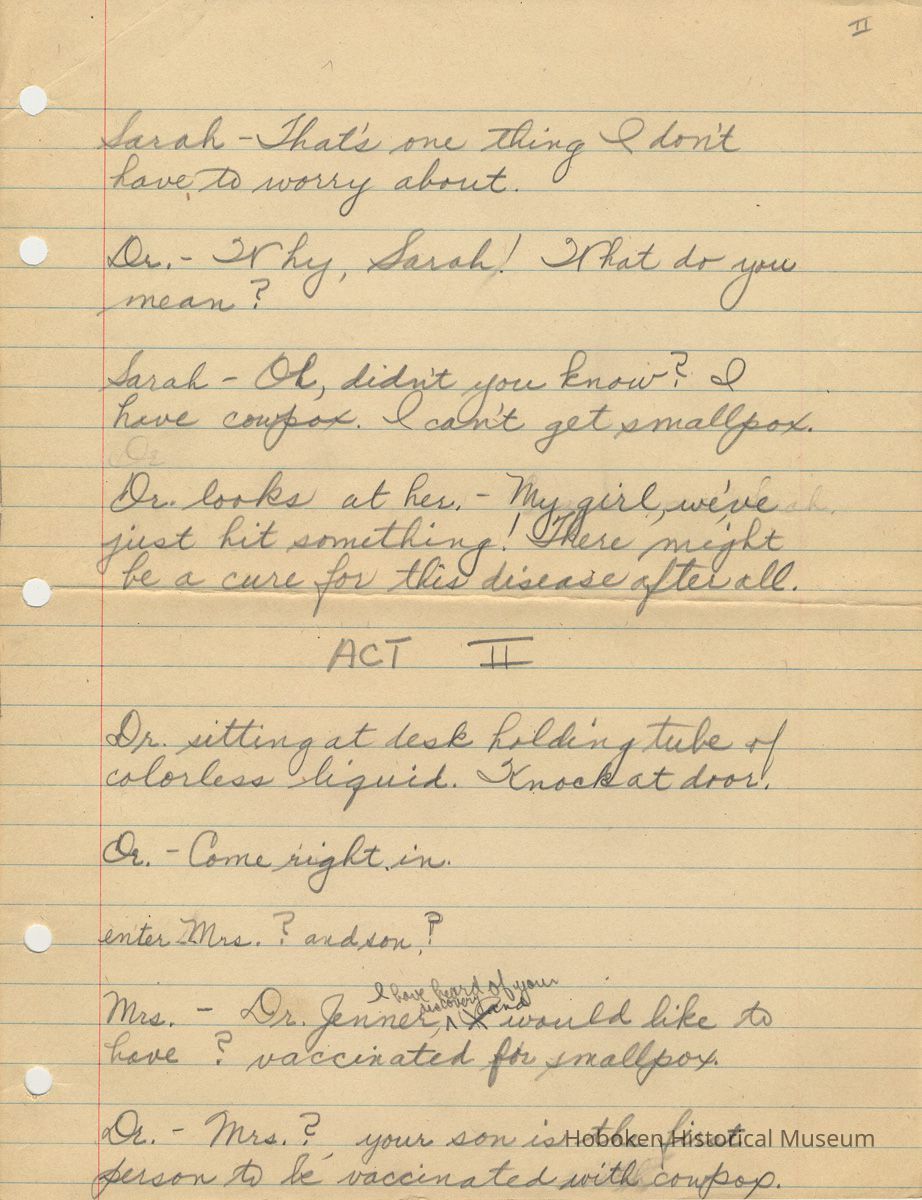 II
Sarah - That's one thing I don't
have to worry about.
Dr. - Why, Sarah! What do you
mean?
Sarah - Oh, didn't you know? I
have cowpox. I can't get smallpox.
Dr. looks at her. - My girl, we've
just hit something! There might
be a cure for this disease after all.
ACT II
Dr. sitting at desk holding tube of
colorless liquid. Knock at door.
Dr. - Come right in.
enter Mrs. ? and son ?
I have heard of your
discovery and
Mrs. - Dr. Jenner, ^ I would like to
have ? vaccinated for smallpox.
Dr. - Mrs. ? your son is the first
person to be vaccinated with cowpox.
Hoboken Historical Museum